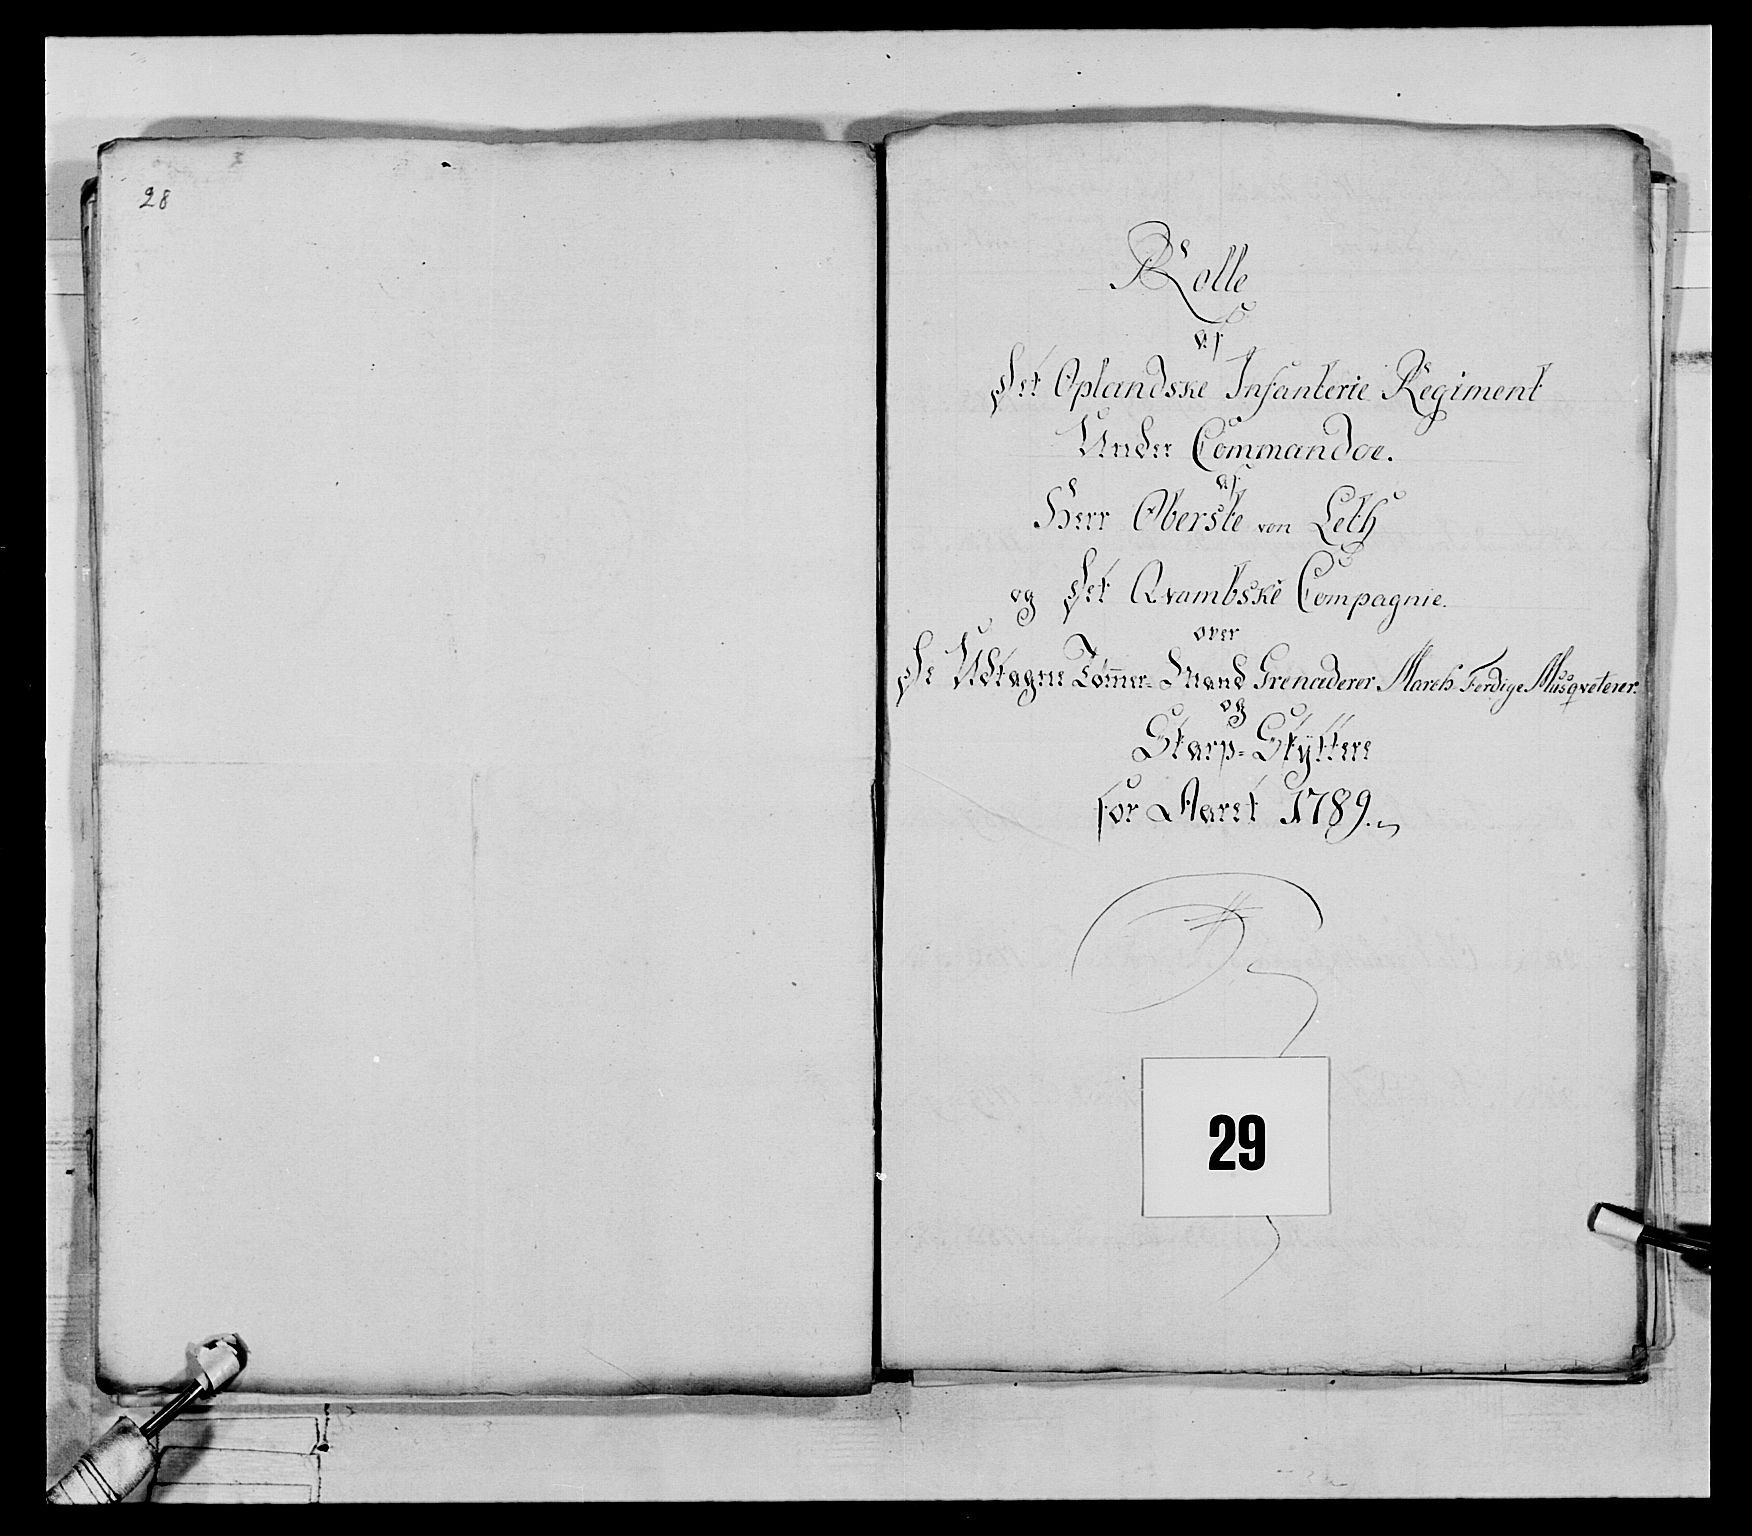 28
Rolle
af
Det Oplandske Infanterie Regiment
Under Commandoe.
af
Herr Oberste von Leth
og Det Qvambske Compagnie.
over
De Udtagne Tömmer-Mænd Grenaderer March Ferdige Musqveterer
og
Skarp-Skyttere
for Aaret 1789.
29